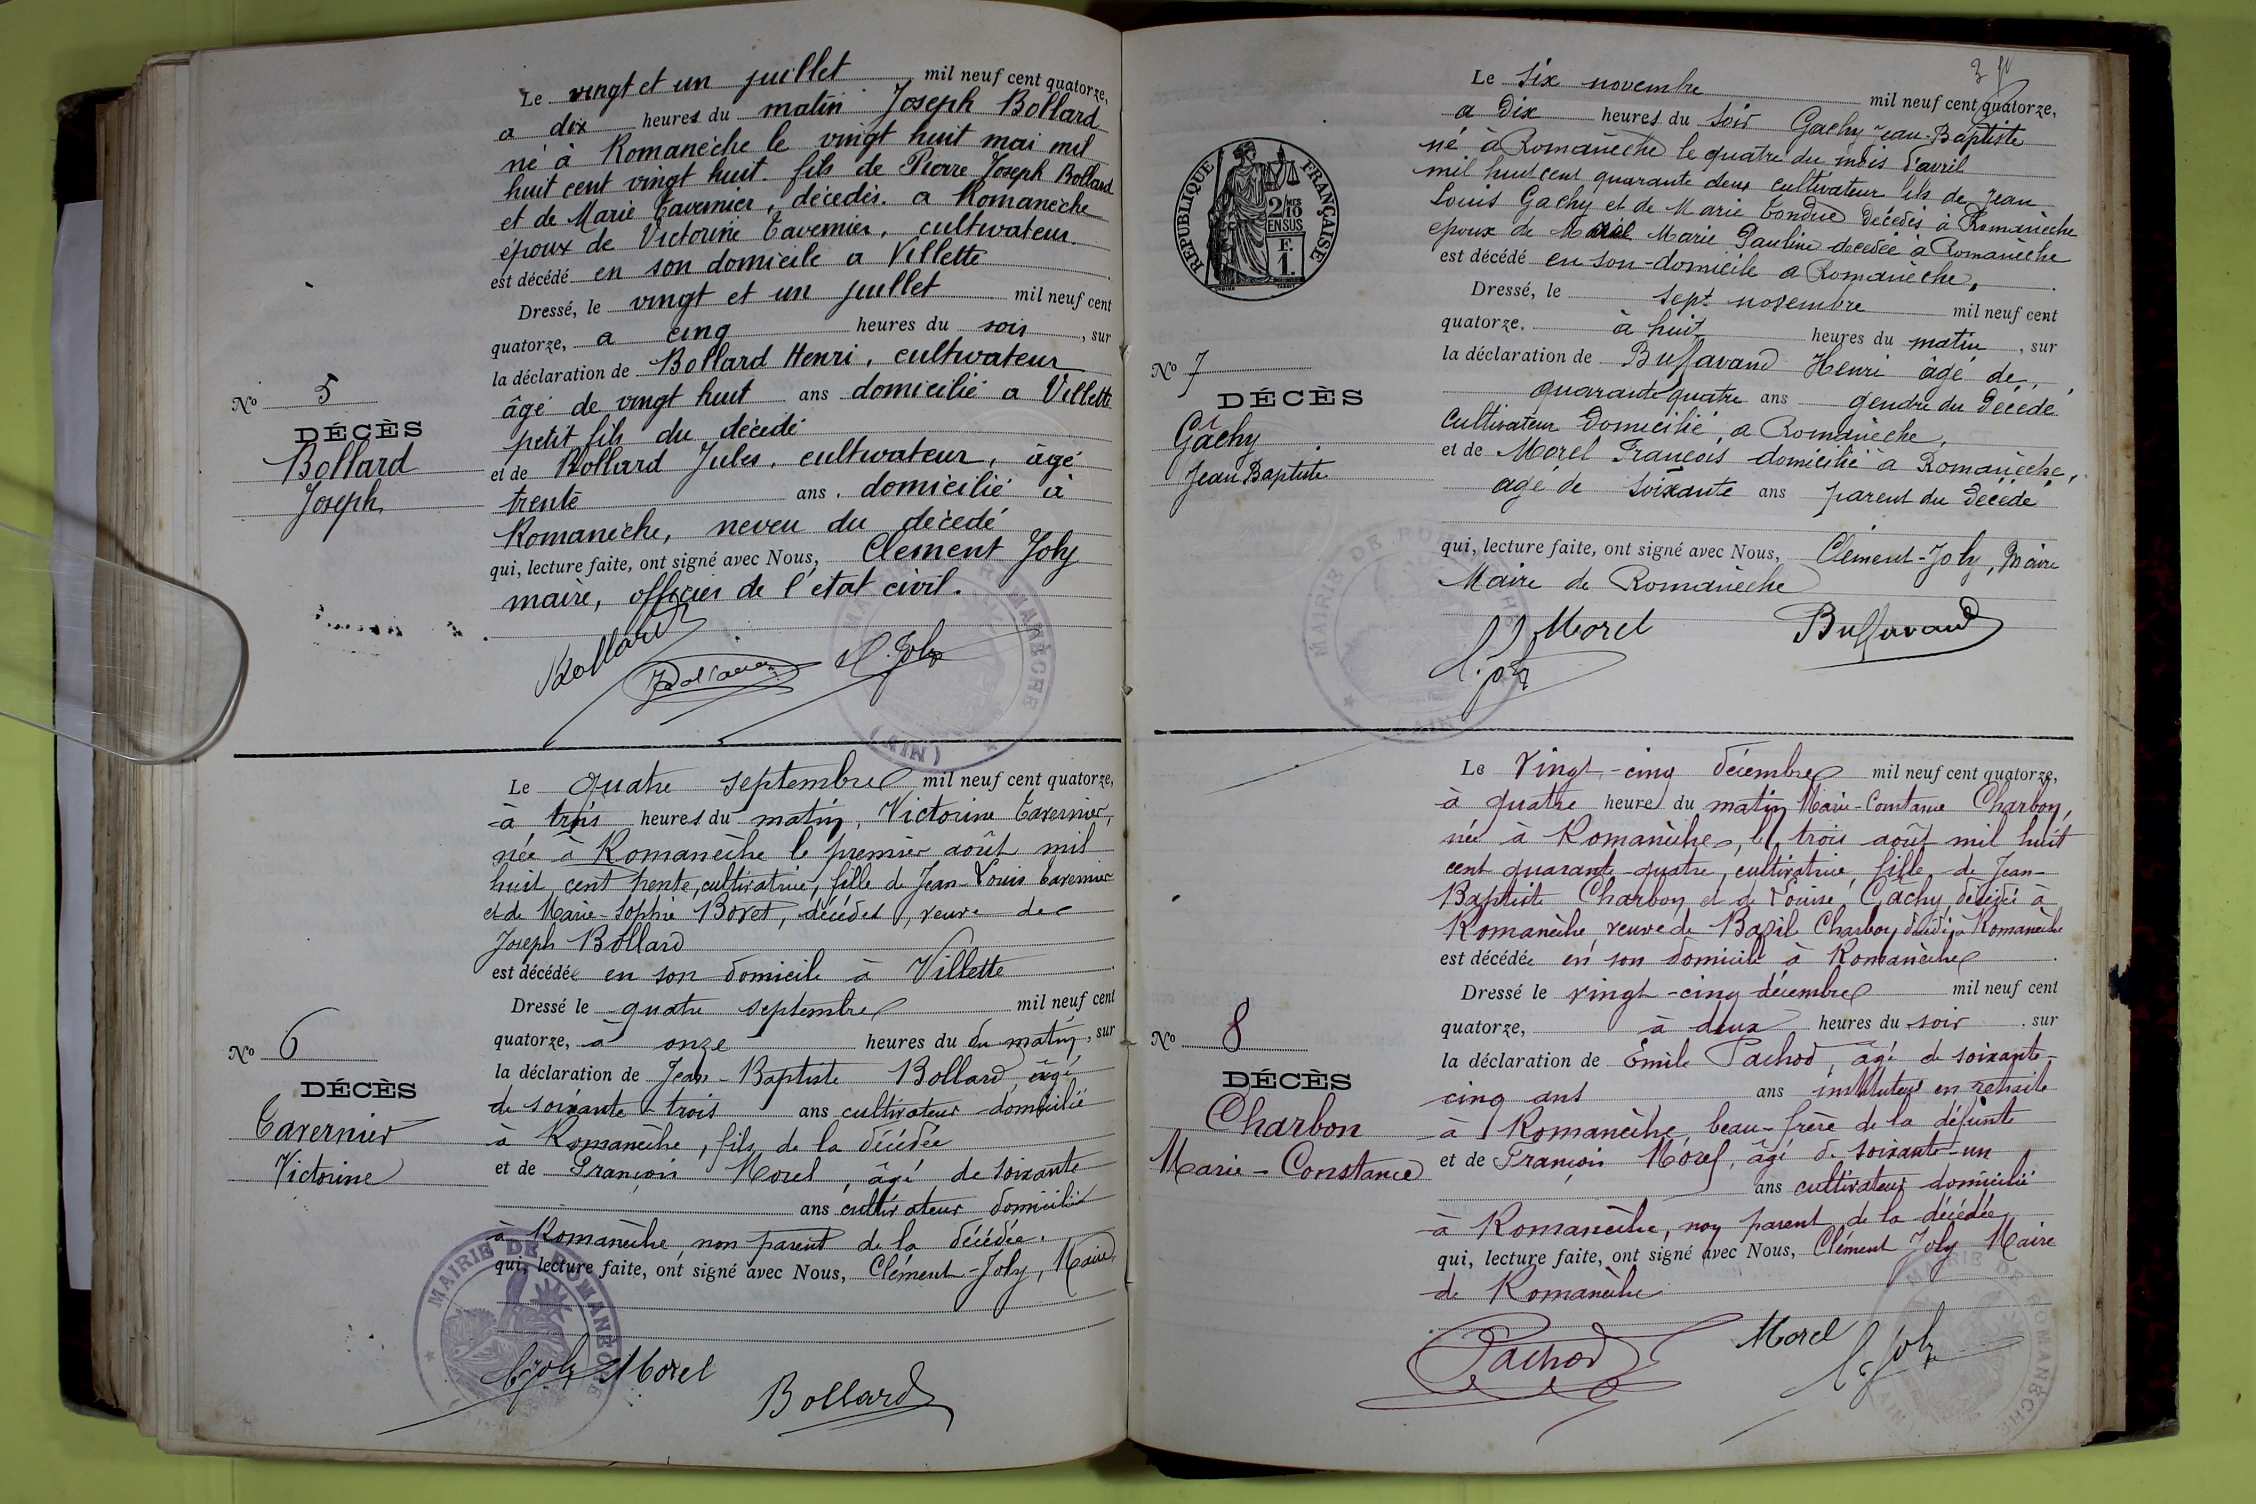 Le vingt et un juillet mil neuf cent quatorze,
a dix heures du matin Joseph Bollard
né à Romanèche le vingt huit mai mil
huit cent vingt huit. fils de Pierre Joseph Bollard
et de Marie Tavernier, décédés. a Romanèche
époux de Victorine Tavernier, cultivateur.
est décédé en son domicile a Villette
Dressé, le vingt et un juillet mil neuf cent
quatorze, a cinq heures du soir, sur
la déclaration de Bollard Henri, cultivateur
âgé de vingt huit ans domicilié a Villette
petit fils du décédé
et de Bollard Jules, cultivateur, âgé
trente ans. domicilié à
Romanèche, neveu du décedé
qui, lecture faite, ont signé avec Nous, Clement Joly
maire, officier de l'etat civil.
No 5
DÉCÈS
Bollard
Joseph
Bollard
C. Joly
MAIRIE DE ROMANÈCHE (AIN)
Le quatre septembre mil neuf cent quatorze,
à trois heures du matin, Victorine Tavernier,
née à Romanèche le premier août mil
huit cent trente, cultivatrice, fille de Jean-Louis Tavernier
et de Marie-Sophie Boret, décédés, veuve de
Joseph Bollard
est décédée en son domicile à Villette
Dressé le quatre septembre mil neuf cent
quatorze, à onze heures du du matin, sur
la déclaration de Jean-Baptiste Bollard âgé
de soixante-trois ans cultivateur domicilié
à Romanèche, fils de la décédée
et de François Morel, âgé de soixante
ans cultivateur domicilié
à Romanèche non parent de la décédée.
qui, lecture faite, ont signé avec Nous, Clément-Joly, Maire
No 6
DÉCÈS
Tavernier
Victorine
MAIRIE DE ROMANÈCHE
C. Joly Morel
Bollard
Le six novembre mil neuf cent quatorze,
a Dix heures du soir Gachy Jean-Baptiste
né à Romanèche le quatre du mois d'avril
mil huit cent quarante deux cultivateur fils de Jean
Louis Gachy et de Marie Tondue Décédés à Romanèche
epoux de Morel Marie Pauline decedée à Romanèche
est décédé en son-domicile a Romanèche,
Dressé, le sept novembre mil neuf cent
quatorze, à huit heures du matin, sur
la déclaration de Buffavand Henri âgé de
quarante quatre ans gendre du Décédé
Cultivateur Domicilié, a Romanèche,
et de Morel Francois domicilié à Romanèche,
agé de soixante ans parent du Décédé
qui, lecture faite, ont signé avec Nous, Clément-Joly, Maire
Maire de Romanèche
RÉPUBLIQUE FRANÇAISE
2/10 MES
EN SUS
F.
1.
No 7
DÉCÈS
Gachy
Jean Baptiste
Morel
Buffavand
C. Joly
MAIRIE DE ROMANÈCHE AIN
Le vingt-cinq décembre mil neuf cent quatorze,
à quatre heure du matin Marie-Constance Charbon,
née à Romanèche, le trois août mil huit
cent quarante-quatre, cultivatrice, fille de Jean-
Baptiste Charbon et de Louise Gachy décédés à
Romanèche, veuve de Bazile Charbon décédé à Romanèche
est décédée en son domicile à Romanèche
Dressé le vingt-cinq décembre mil neuf cent
quatorze, à deux heures du soir. sur
la déclaration de Emile Pachod, âgé de soixante-
cinq ans ans instituteur en retraite
à Romanèche, beau-frère de la défunte
et de François Morel, âgé de soixante-un
ans cultivateur domicilié
à Romanèche, non parent de la décédée
qui, lecture faite, ont signé avec Nous, Clément Joly Maire
de Romanèche
No 8
DÉCÈS
Charbon
Marie-Constance
Pachod
Morel
C. Joly
MAIRIE DE ROMANÈCHE AIN